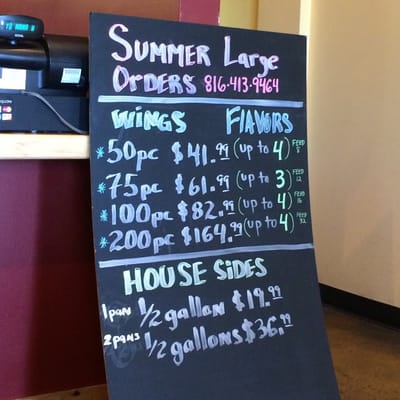 SUMMER Large
ORDERS 816-413-9464
WINGS FLAVORS
*50pc $41.99 (up to 4) FEED 8
*75pc $61.99 (up to 3) FEED 12
*100pc $82.99 (up to 4) FEED 16
*200pc $164.99 (up to 4) FEED 32
HOUSE SiDES
1 pan 1/2 gallon $19.99
2 pans 1/2 gallons $36.99